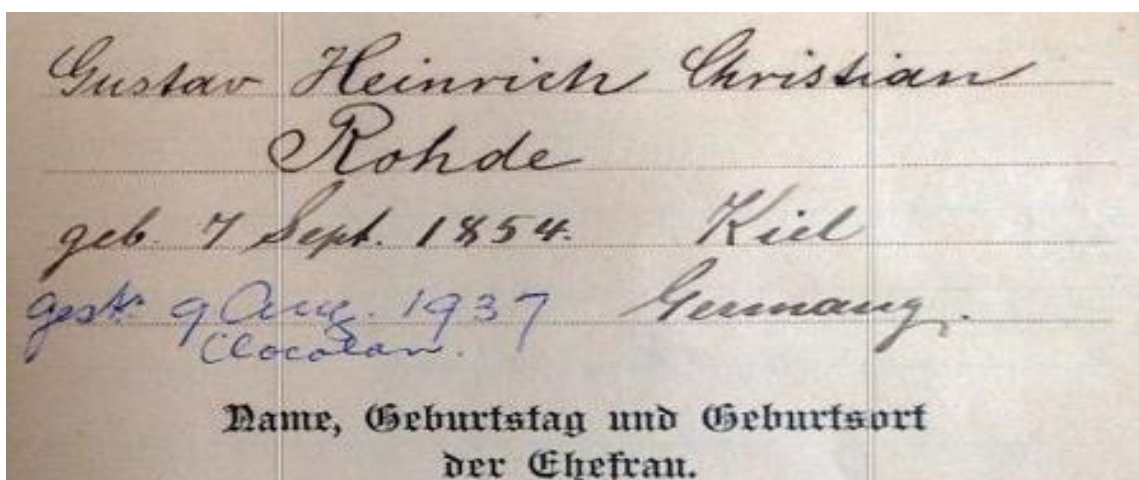 Gustav Heinrich Christian
Rohde
geb. 7 Sept. 1854. Kiel
gest. 9 Aug. 1937 Germany.
Clocolan.
Name, Geburtstag und Geburtsort
der Ehefrau.